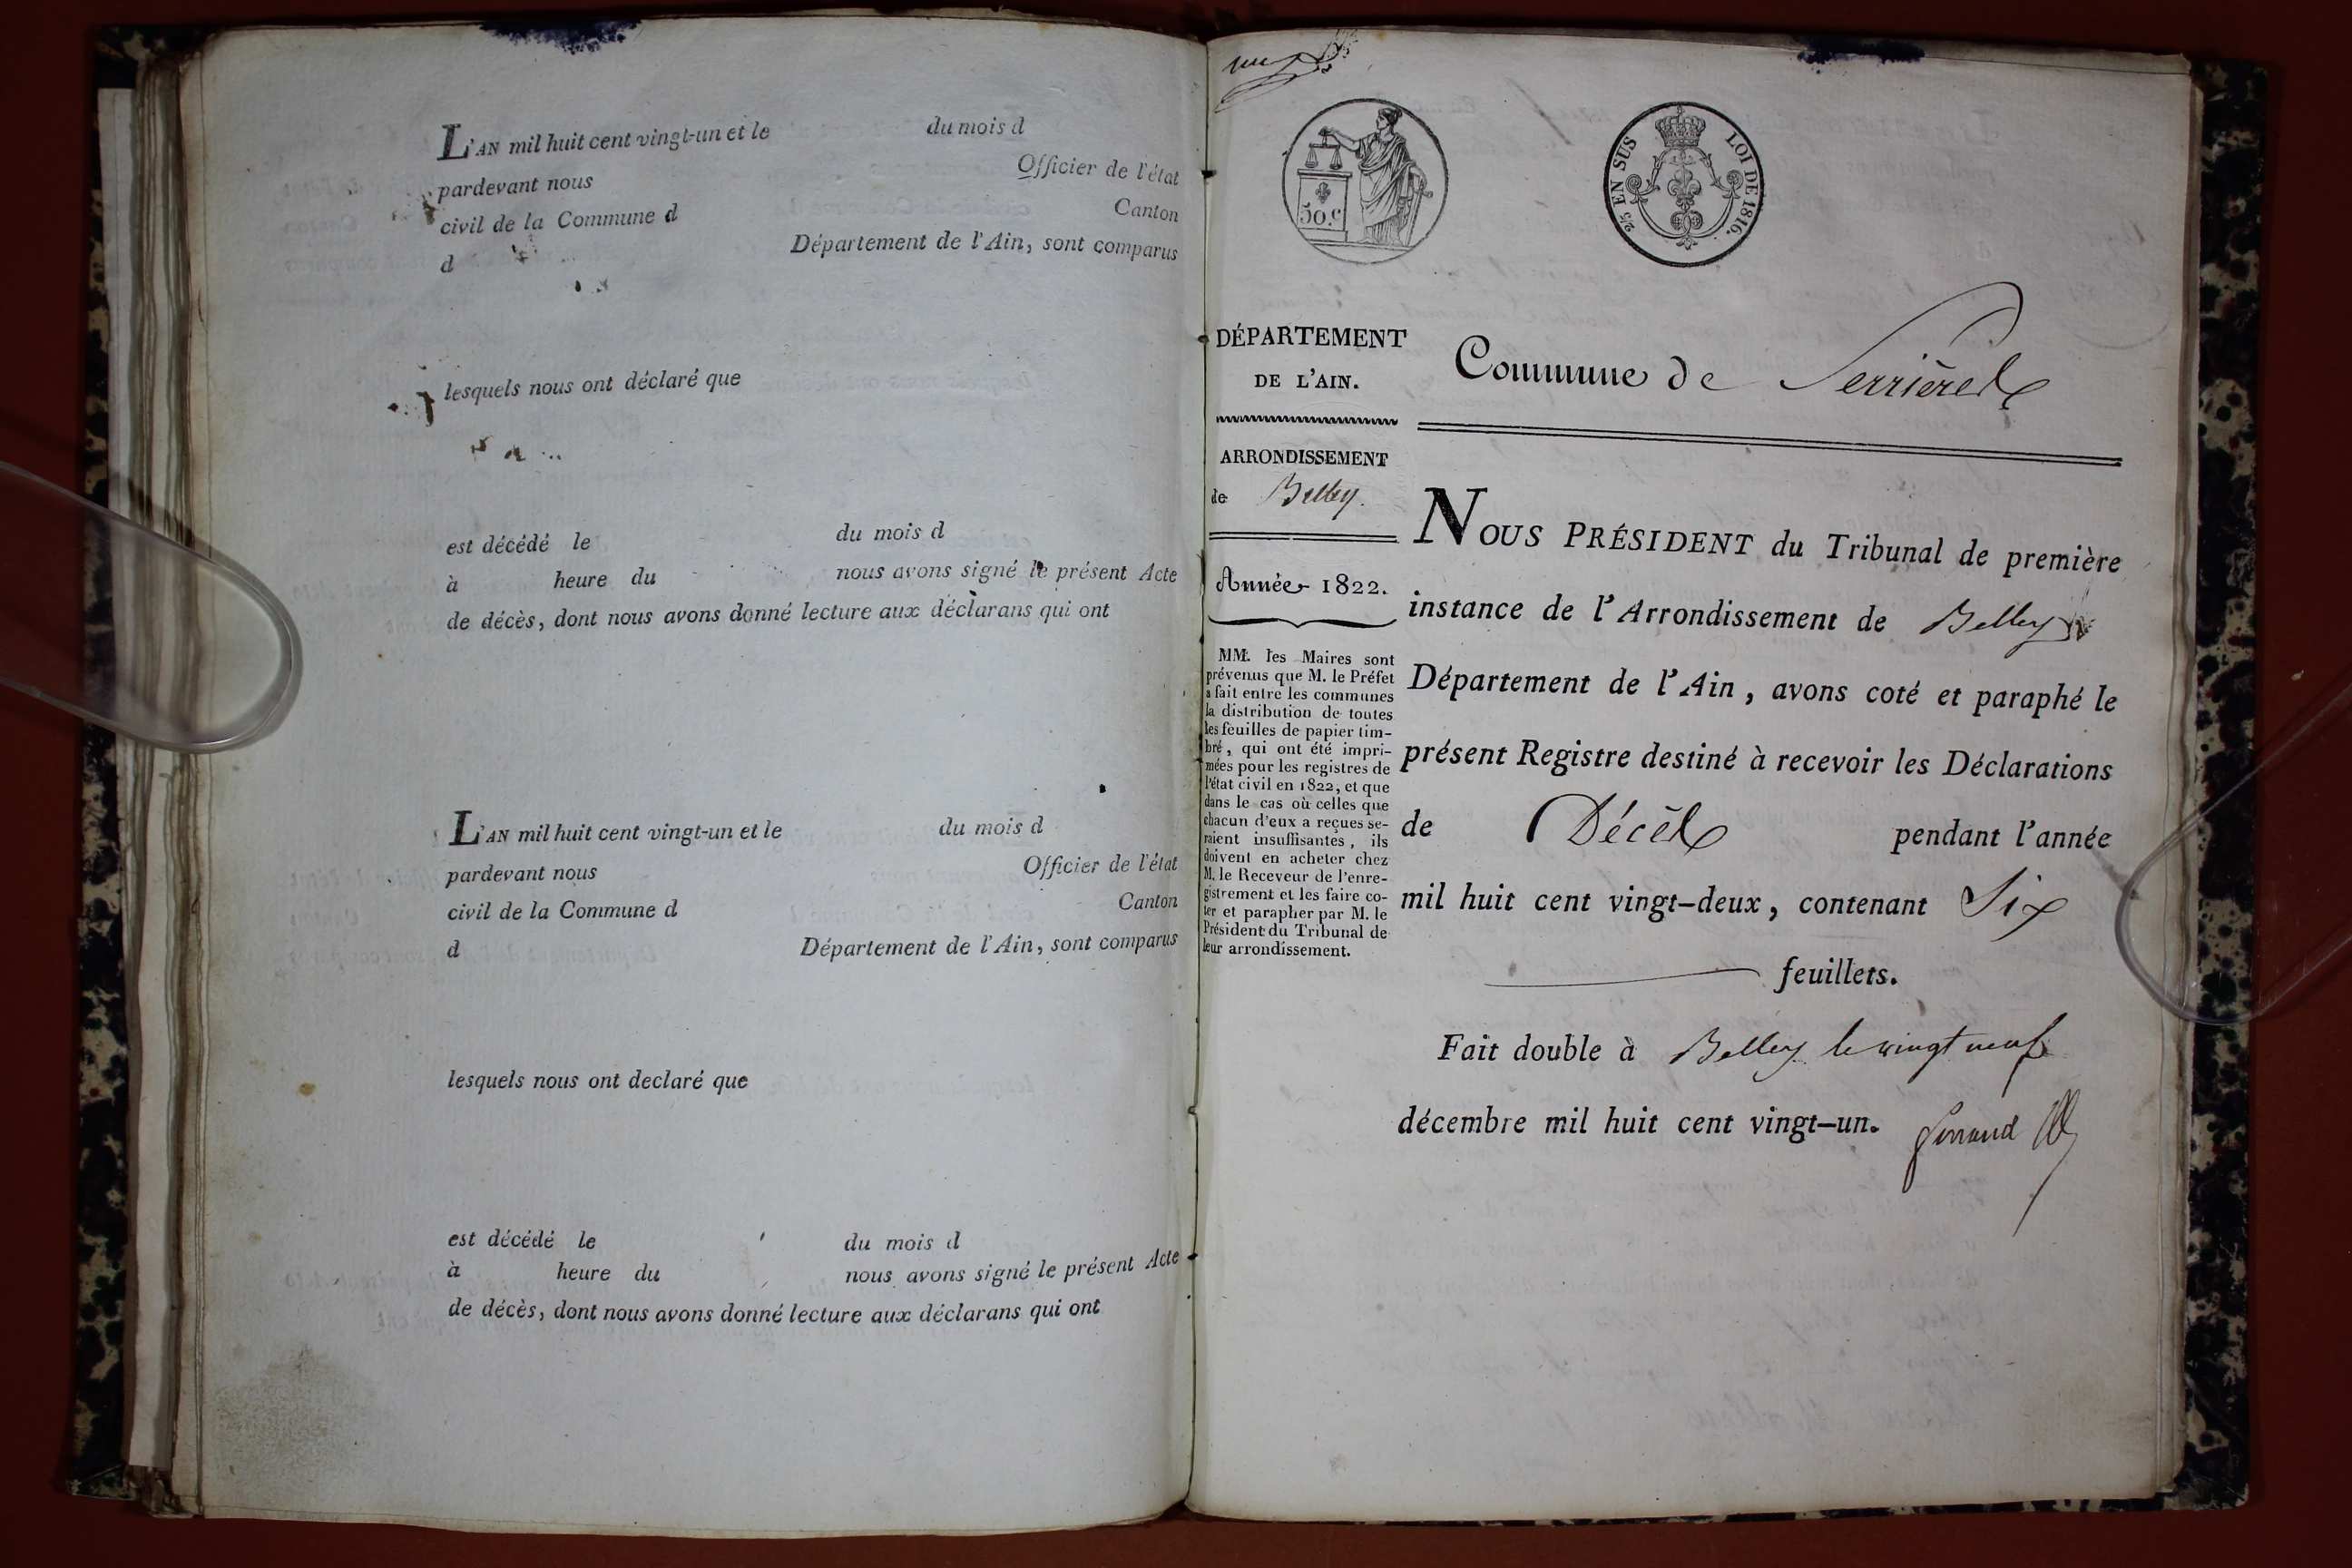 L'AN mil huit cent vingt-un et le du mois d
pardevant nous Officier de l'état
civil de la Commune d Canton
d Département de l'Ain, sont comparus
lesquels nous ont déclaré que
est décédé le du mois d
à heure du nous avons signé le présent Acte
de décès, dont nous avons donné lecture aux déclarans qui ont
L'AN mil huit cent vingt-un et le du mois d
pardevant nous Officier de l'état
civil de la Commune d Canton
d Département de l'Ain, sont comparus
lesquels nous ont declaré que
est décédé le du mois d
à heure du nous avons signé le présent Acte
de décès, dont nous avons donné lecture aux déclarans qui ont
50.c
2/5 EN SUS LOI DE 1816.
DÉPARTEMENT
DE L'AIN.
ARRONDISSEMENT
de Belley.
Année 1822.
MM. les Maires sont
prévenus que M. le Préfet
a fait entre les communes
la distribution de toutes
les feuilles de papier tim-
bré, qui ont été impri-
mées pour les registres de
l'état civil en 1822, et que
dans le cas où celles que
chacun d'eux a reçues se-
raient insuffisantes, ils
doivent en acheter chez
M. le Receveur de l'enre-
gistrement et les faire co-
ter et parapher par M. le
Président du Tribunal de
leur arrondissement.
Commune de Serrières
NOUS PRÉSIDENT du Tribunal de première
instance de l'Arrondissement de Belley
Département de l'Ain, avons coté et paraphé le
présent Registre destiné à recevoir les Déclarations
de Décès pendant l'année
mil huit cent vingt-deux, contenant Six
feuillets.
Fait double à Belley le vingt neuf
décembre mil huit cent vingt-un.